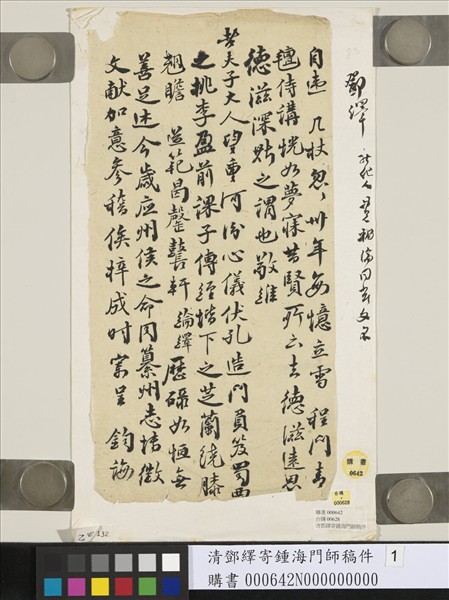 鄧繹
自違 几杖忽〃卅年每憶立雪 程門春
氈侍講恍如夢寐昔賢所云去德滋遠思
德滋深斯之謂也敬維
夫子大人望重河汾心儀伏孔造門負笈蜀西
之桃李盈前課子傳經堦下之芝蘭繞膝
翹瞻 道範曷罄 軒 歷碌如恒無
善足述今歲應州侯之命同纂州志 徵
文献加意參稽俟梓成时寄呈 鈞誨
購書
0642
台購
000628
購書 000642
台購 00628
清鄧繹寄鍾海門師稿件
清鄧繹寄鍾海門師稿件 1
購書 000642N000000000